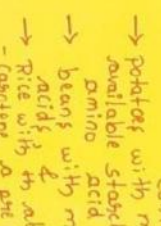 → potatoes with m
available starch
amino acid
→ beans with m
acids &
→ Rice with th al